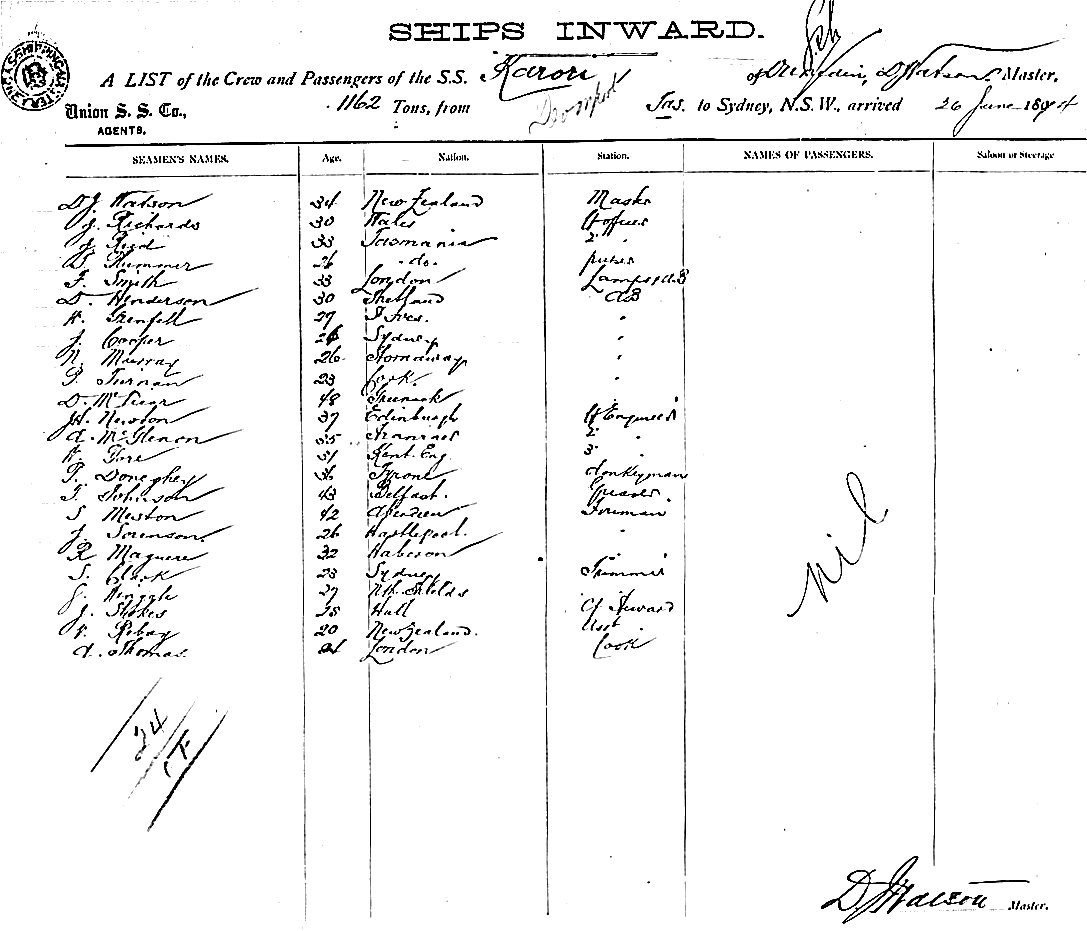 SHIPS INWARD.
A LIST of the Crew and Passengers of the S.S. Karori of Dunedin, D J Watson Master,
Union S. S. Co., AGENTS. 1162 Tons, from Devonport Tas. to Sydney, N.S.W., arrived 26 June 1894
SEAMEN'S NAMES. Age. Nation. Station. NAMES OF PASSENGERS. Saloon or Steerage
D J Watson 34 New Zealand Master
J. Richards 30 Wales
J. Reid 33 Tasmania 2 "
D. Plummer 26 - do. - purser
F. Smith 33 London Lamps & A.B
D. Henderson 30 Shetland AB
W. Grenfell 27 St Ives. "
J. Cooper Sydney "
N. Murray 26. Stornaway "
P. Turnan 23 Cork. "
D. McLear 48 Greenock
H. Newton 37 Edinburgh Ch Engineer
A. McGlenon 35 2 "
W. Gore 51 Kent. Eng. 3 "
P. Donaghey 36 Tyrone donkeyman
J. Johnson 43 Belfast. Greaser
S Meston 42 Aberdeen Fireman
J. Sorenson 26 Hartlepool. "
R Maguere 32
S. Clark 23 Sydney Trimmer
J. 27 Nth Shields
J. Stokes 38 Hull Cf Steward
20 New Zealand. Asst
A. Thomas. London Cook
nil
24
D J Watson Master.